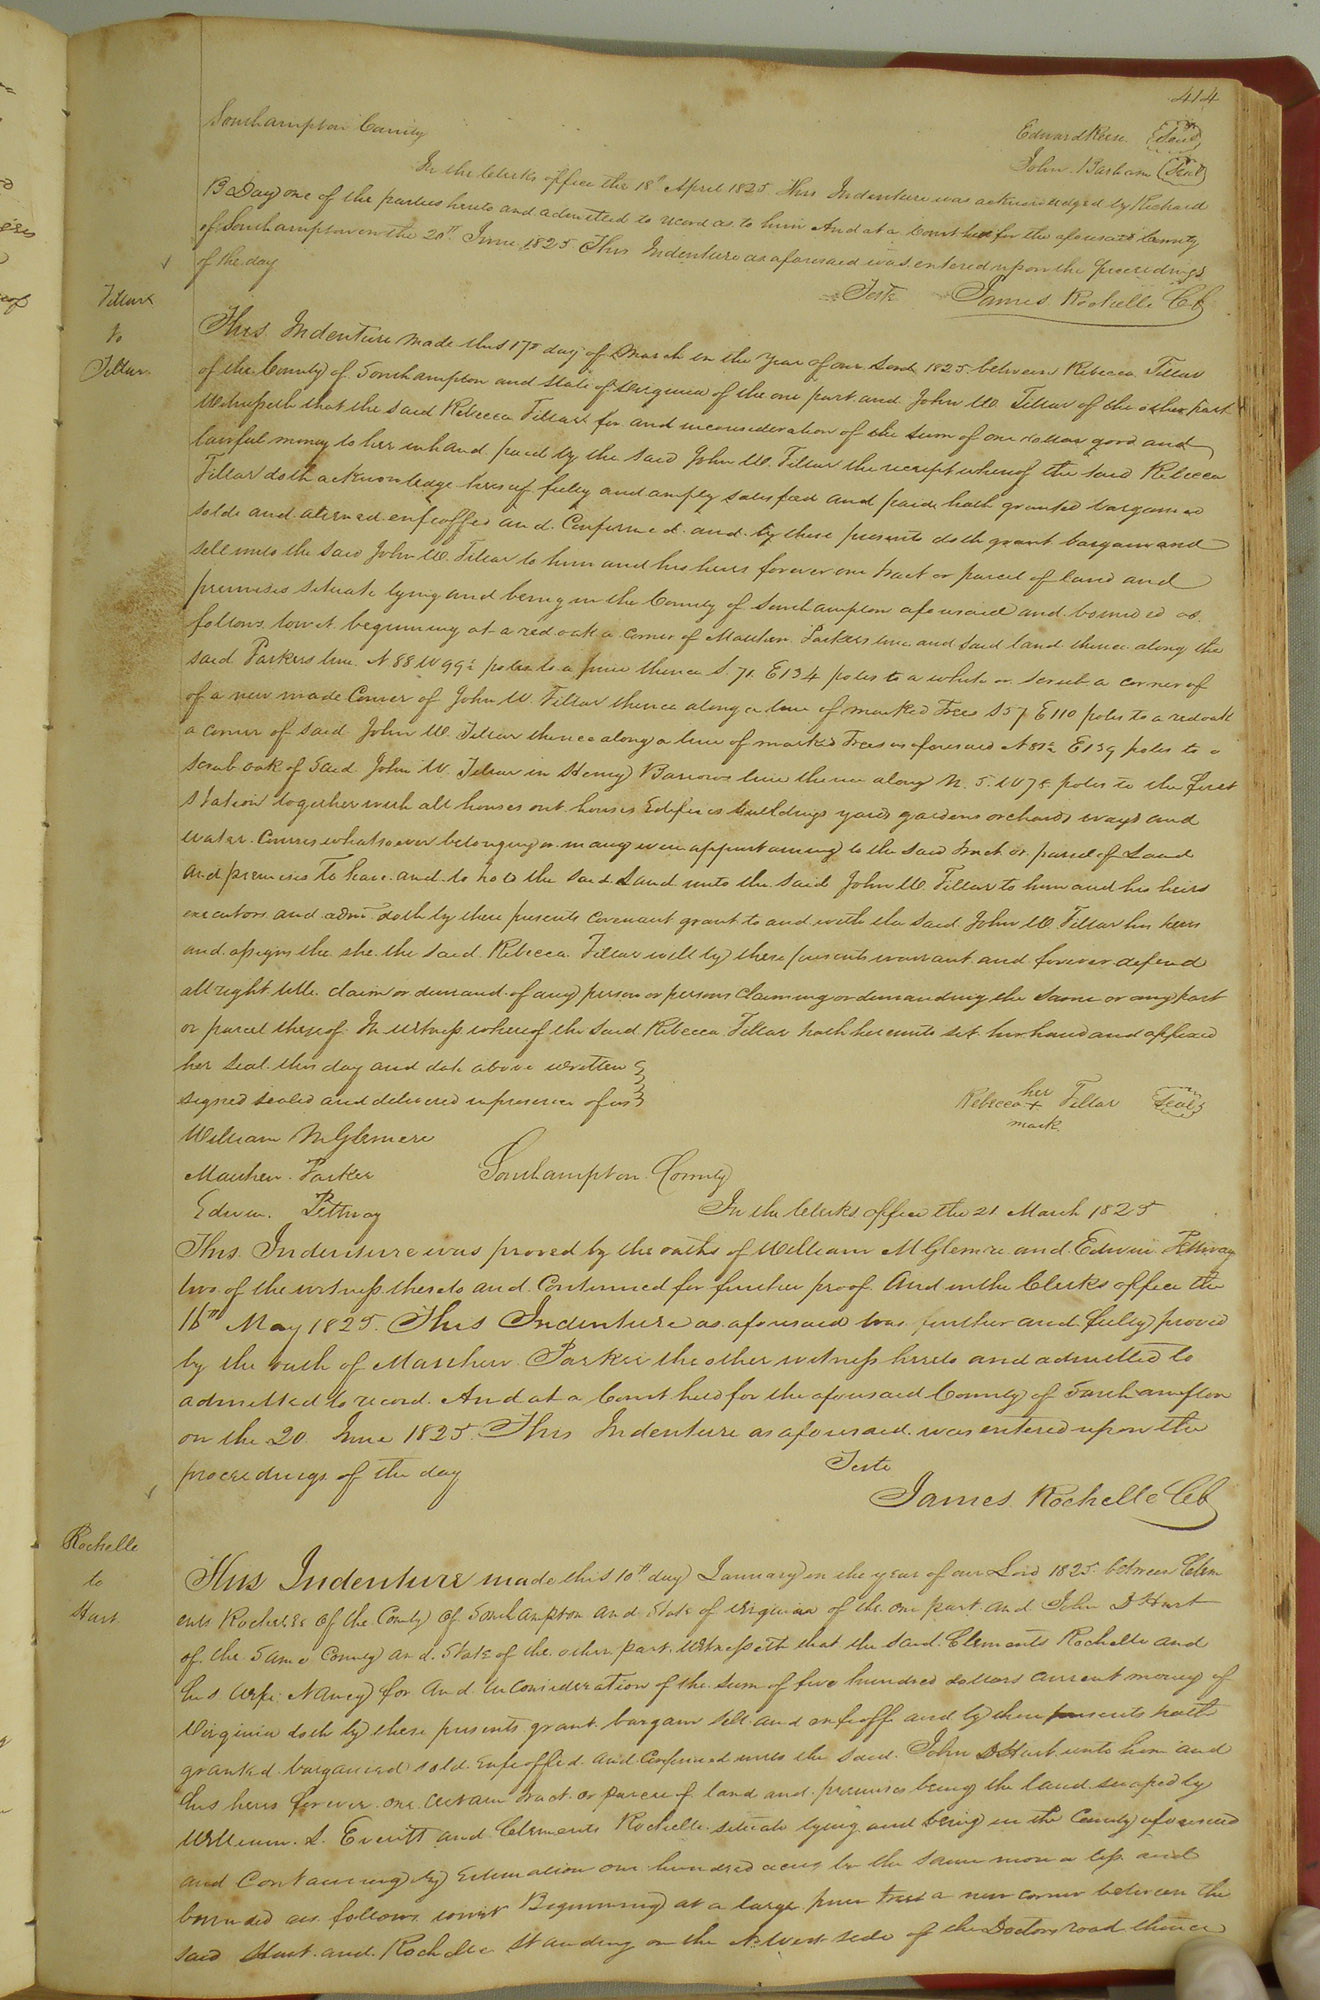 414
Edward Reese (Seal)
John Barham (Seal)
Southampton County
In the Clerks office the 18th April 1825 This Indenture was acknowledged by Richard
B Day one of the parties hereto and admitted to record as to him And at a Court held for the aforesaid County
of Southampton on the 20th June 1825 This Indenture as aforesaid was entered upon the proceedings
of the day
Teste James Rochelle CC
Tillar
to
Tillar
This Indenture made this 17th day of March in the Year of our Lord 1825 between Rebecca Tillar
of the County of Southampton and State of Virginia of the one part and John W. Tillar of the other part
Witnesseth that the said Rebecca Tillar for and in consideration of the sum of one dollar good and
lawful money to her in hand paid by the said John W. Tillar the receipt whereof the said Rebecca
Tillar doth acknowledge herself fully and amply satisfied and paid hath granted bargained
sold and aliened enfeoffed and Confirmed and by these presents doth grant bargain and
sell unto the said John W. Tillar to him and his heirs forever one tract or parcel of land and
premises situate lying and being in the County of Southampton aforesaid and bounded as
follows towit beginning at a red oak a corner of Mathew Parkers line and said land thence along the
said Parkers line N 88 W 99½ poles to a pine thence S. 71 E 134 poles to a white or scrub a corner of
of a new made Corner of John W Tillar thence along a line of marked Trees S 57 E 110 poles to a red oak
a corner of said John W. Tillar thence along a line of marked Trees as aforesaid N 81½ E 139 poles to a
scrub oak of Said John W. Tillar in Henry Barrows line thence along N. 5. W 78 poles to the first
Station together with all houses out houses Edifices buildings yards gardens orchards ways and
water Courses whatsoever belonging or in any wise appurtaining to the said tract or parcel of Land
and premises To have and to hold the said Land unto the said John W. Tillar to him and his heirs
executors and admr. doth by these presents Covenant grant to and with the said John W Tillar his heirs
and assigns the she the said Rebecca Tillar will by these presents warrant and forever defend
all right title claim or demand of any person or persons Claiming or demanding the Same or any part
or parcel thereof In witness whereof the said Rebecca Tillar hath hereunto set her hand and affixed
her seal this day and date above written
signed sealed and delivered in presence of us
Rebecca her + mark Tillar (Seal)
William McGlemere
Mathew Parker
Edwin Pettway
Southampton County
In the Clerks office the 21 March 1825
This Indenture was proved by the oaths of William McGlemre and Edwin Pettway
two of the witness thereto and Continued for further proof And in the Clerks office the
16th May 1825 This Indenture as aforesaid was further and fully proved
by the oath of Matthew Parker the other witness hereto and admitted to
admitted to record And at a Court held for the aforesaid County of Southampton
on the 20 June 1825 This Indenture as aforesaid was entered upon the
proceedings of the day
Teste
James Rochelle CC
Rochelle
to
Hart
This Indenture made this 10th day January in the year of our Lord 1825 between Clem
ents Rochelle of the County of Southampton and State of Virginia of the one part and John D Hart
of the Same County and State of the other part Witnesseth that the said Clements Rochelle and
his Wife Nancy for and in Consideration of the sum of five hundred dollars current money of
Virginia doth by these presents grant bargain sell and enfeoff and by these presents hath
granted bargained sold enfeoffed and Confirmed unto the said John D Hart unto him and
his heirs forever one certain tract or parcel of land and premises being the land swaped by
William S. Everitt and Clements Rochelle situate lying and being in the County aforesaid
and Containing by Estimation one hundred acres be the same more or less and
bounded as follows towit Beginning at a large pine tree a new corner between the
said Hart and Rochelle Standing on the N. West side of the Doctors road thence